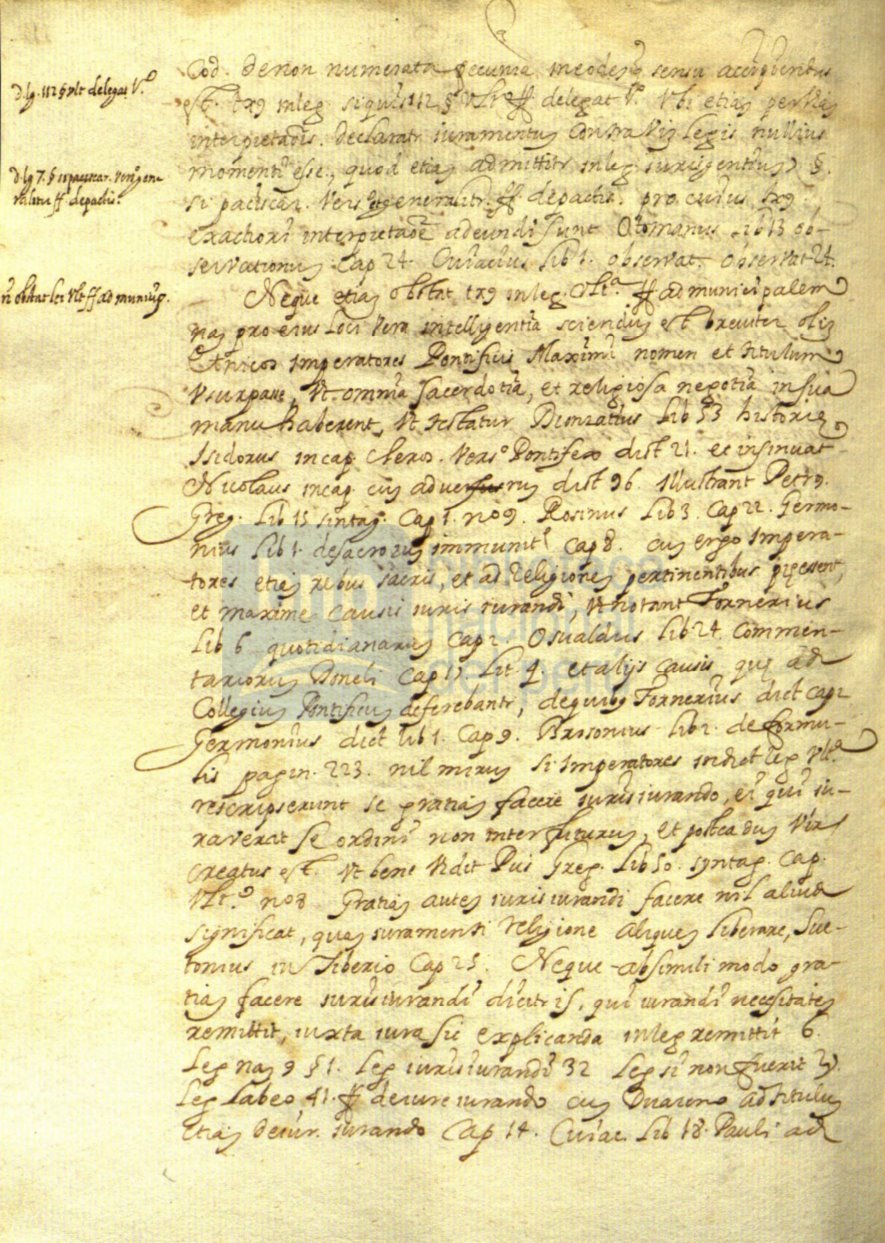 D. lg. 112 § ult delegat. 1.º
D. lg 7. § si paciscar. vers. gene
raliter ff depactis.
ñ obstat lex ult ff ad municip.
Cod. de non numerata pecunia in eodẽq sensu accipiendus
est. txº in leg. si quis 112 § ult. ff delegat. 1.º ubi etiaȝ
interpretaõis. declarat iuramentuȝ contra viȝ legis nullius
momenti esse, quod etiaȝ admittitr in leg iurisgentiuȝ 7 §.
si paciscar. vers. et generalitr. ff depactis. pro cuius txº
exactiori interpretaõe adeundi sunt Otomanus Lib 13 ob-
servationuȝ Cap 24. Cuiacius Lib 1. observat. observat 24.
Neque etiaȝ obstat txº in leg. ultª ff ad municipalem
naȝ pro eius loci vera intelligentia sciendũ est breviter oliȝ
Ethnicos Imperatores Pontificis Maximi nomen et titulum
usurpasse, ut omnia sacerdotia, et religiosa negotia in sua
manu haberent, ut testatur Dion Lib 53 historiæ
Isidorus in cap. Cleros. versº Pontifex dist 21. et insinuat
Nicolaus in cap. cuȝ ad veruȝ dist 96. illustrant Petrº
Greg. Lib 15 sintag. Cap 1. nº 9. Rosinus Lib 3. Cap 22. Germo-
nius Lib 1. de sacroruȝ immunit. Cap 8. cuȝ ergo Impera-
tores etiaȝ rebus sacris, et ad Religioneȝ pertinentibus præessent,
et maxime causis iuris iurandi, ut notant Fornerius
Lib 6 quotidianaruȝ Cap 2. Osualdus Lib 24 Commen-
tarioruȝ Doneli Cap 17 Lit 4. et alijs causis, quæ ad
Collegiuȝ Pontificuȝ deferebantr, de quibº Fornerius dict cap 2
Germonius dict lib 1. Cap 9. Brisonius Lib 1. de formu-
lis pagin. 223. nil miruȝ si Imperatores in dict leg ultª
rescripserunt se gratiaȝ facere iurisiurando, ei qui iu-
raverat se ordini non interfuturuȝ, et postea duuȝ vir
creatus est. ut bene vidit Petrus Greg. Lib 50. syntag. Cap.
ultº nº 8 Gratiaȝ auteȝ iurisiurandi facere nil aliud
significat, quaȝ iuramenti religione aliqueȝ liberare, Sue-
tonius in Tiberio Cap 25. Neque absimili modo gra-
tiaȝ facere iurisiurandi dicitr is, qui iurandi necessitateȝ
remittit, iuxta iura sic explicanda in leg remittit 6.
Leg naȝ 9 § 1. Leg iurisiurandi 32 Leg si non fuerit
Leg Labeo 41. ff de iure iurando cuȝ Duareno ad tituluȝ
etiaȝ de iur. iurando Cap 14. Cuiac. Lib 18. Pauli ad
biblioteca
nacional
del perú